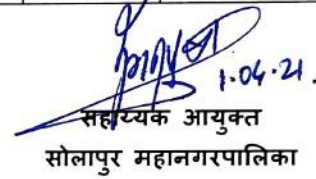 1.04.21.
सहाय्यक आयुक्त
सोलापुर महानगरपालिका